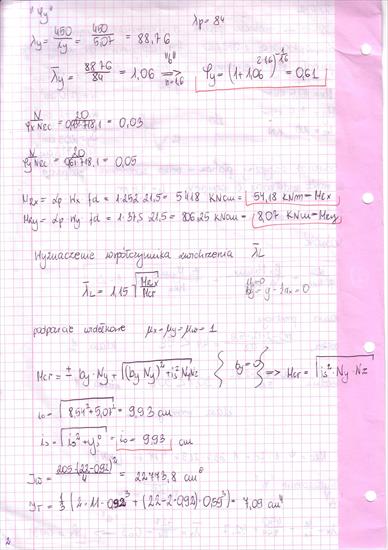 "φy"
λy = 450/iy = 450/5,07 = 88,76 λp = 84
λ̄y = 88,76/84 = 1,06 "b" ⇒ n=1,6 φy = (1+1,06^2·1,6)^-1/1,6 = 0,61
N/φxNRC = 20/718,1 = 0,03
N/φyNRC = 20/0,61·718,1 = 0,05
MRx = αp Wx fd = 1·252·21,5 = 5418 KNcm = 54,18 KNm = MRx
MRy = αp Wy fd = 1·37,5·21,5 = 806,25 KNcm = 8,07 KNm = MRy
Wyznaczenie współczynnika zwichrzenia λ̄L
λ̄L = 1,15 √MRx/Mcr by = y - = 0
podparcie widełkowe μx=μy=μω=1
Mcr = ± by · Ny + √(by Ny)²+is² NyNz { by = 0 } ⇒ Mcr = √is² · Ny · Nz
io = √8,54²+5,07² = 9,93 cm
is = √io² + ys² = io = 9,93 cm
Jω = 205·(22-0,92)²/4 = 22773,8 cm⁶
JT = 1/3 (2·11·0,92³ + (22-2·0,92)·0,55³) = 7,09 cm⁴
2